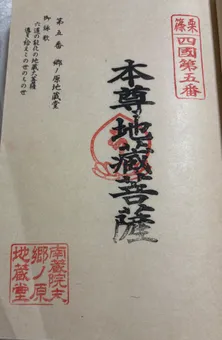 篠栗
四國第五番
本尊地藏菩薩
第五番 郷ノ原地蔵堂
御詠歌
六道の能化の地蔵大菩薩
導き給えこの世のちの世
南蔵院末
郷ノ原
地蔵堂